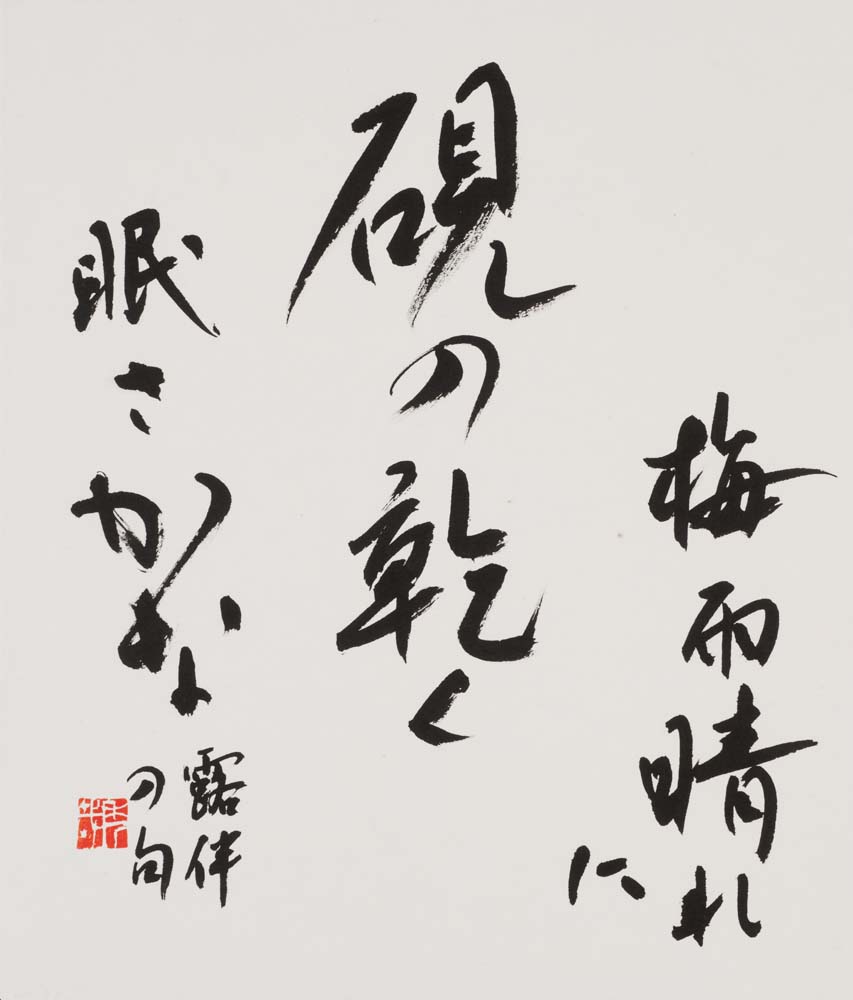 梅雨晴れ
に
硯の乾く
眠さかな
露伴
の句